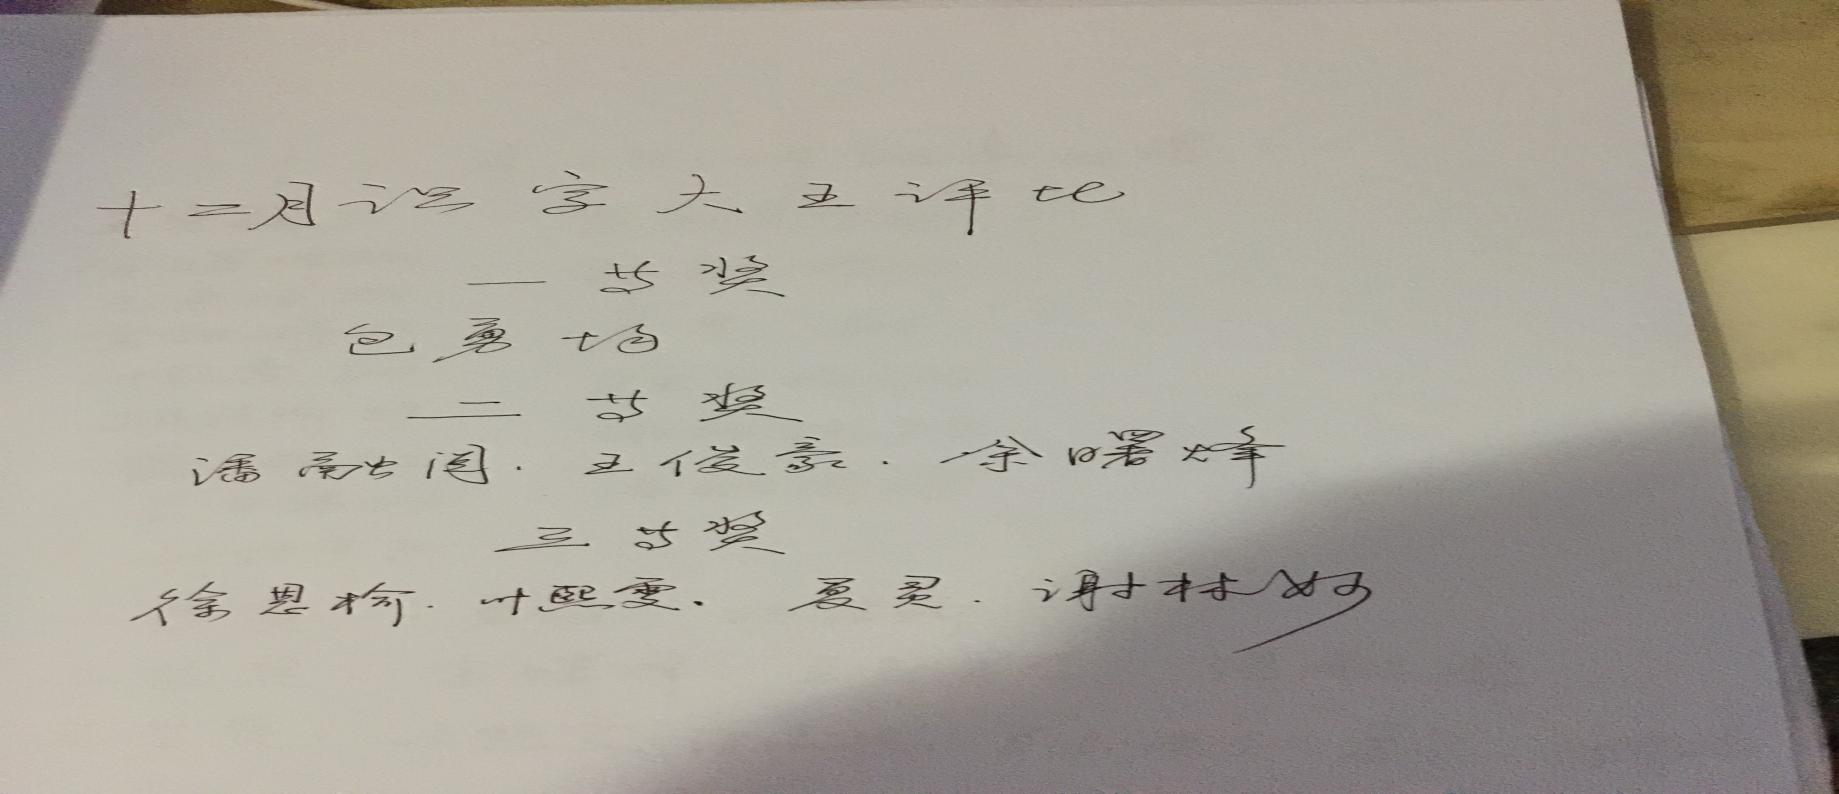 十二月识字大王评比
一等奖
包勇均
二等奖
潘融阅.王俊豪.余曙烽
三等奖
徐思榆.叶熙雯.夏灵.谢林妤